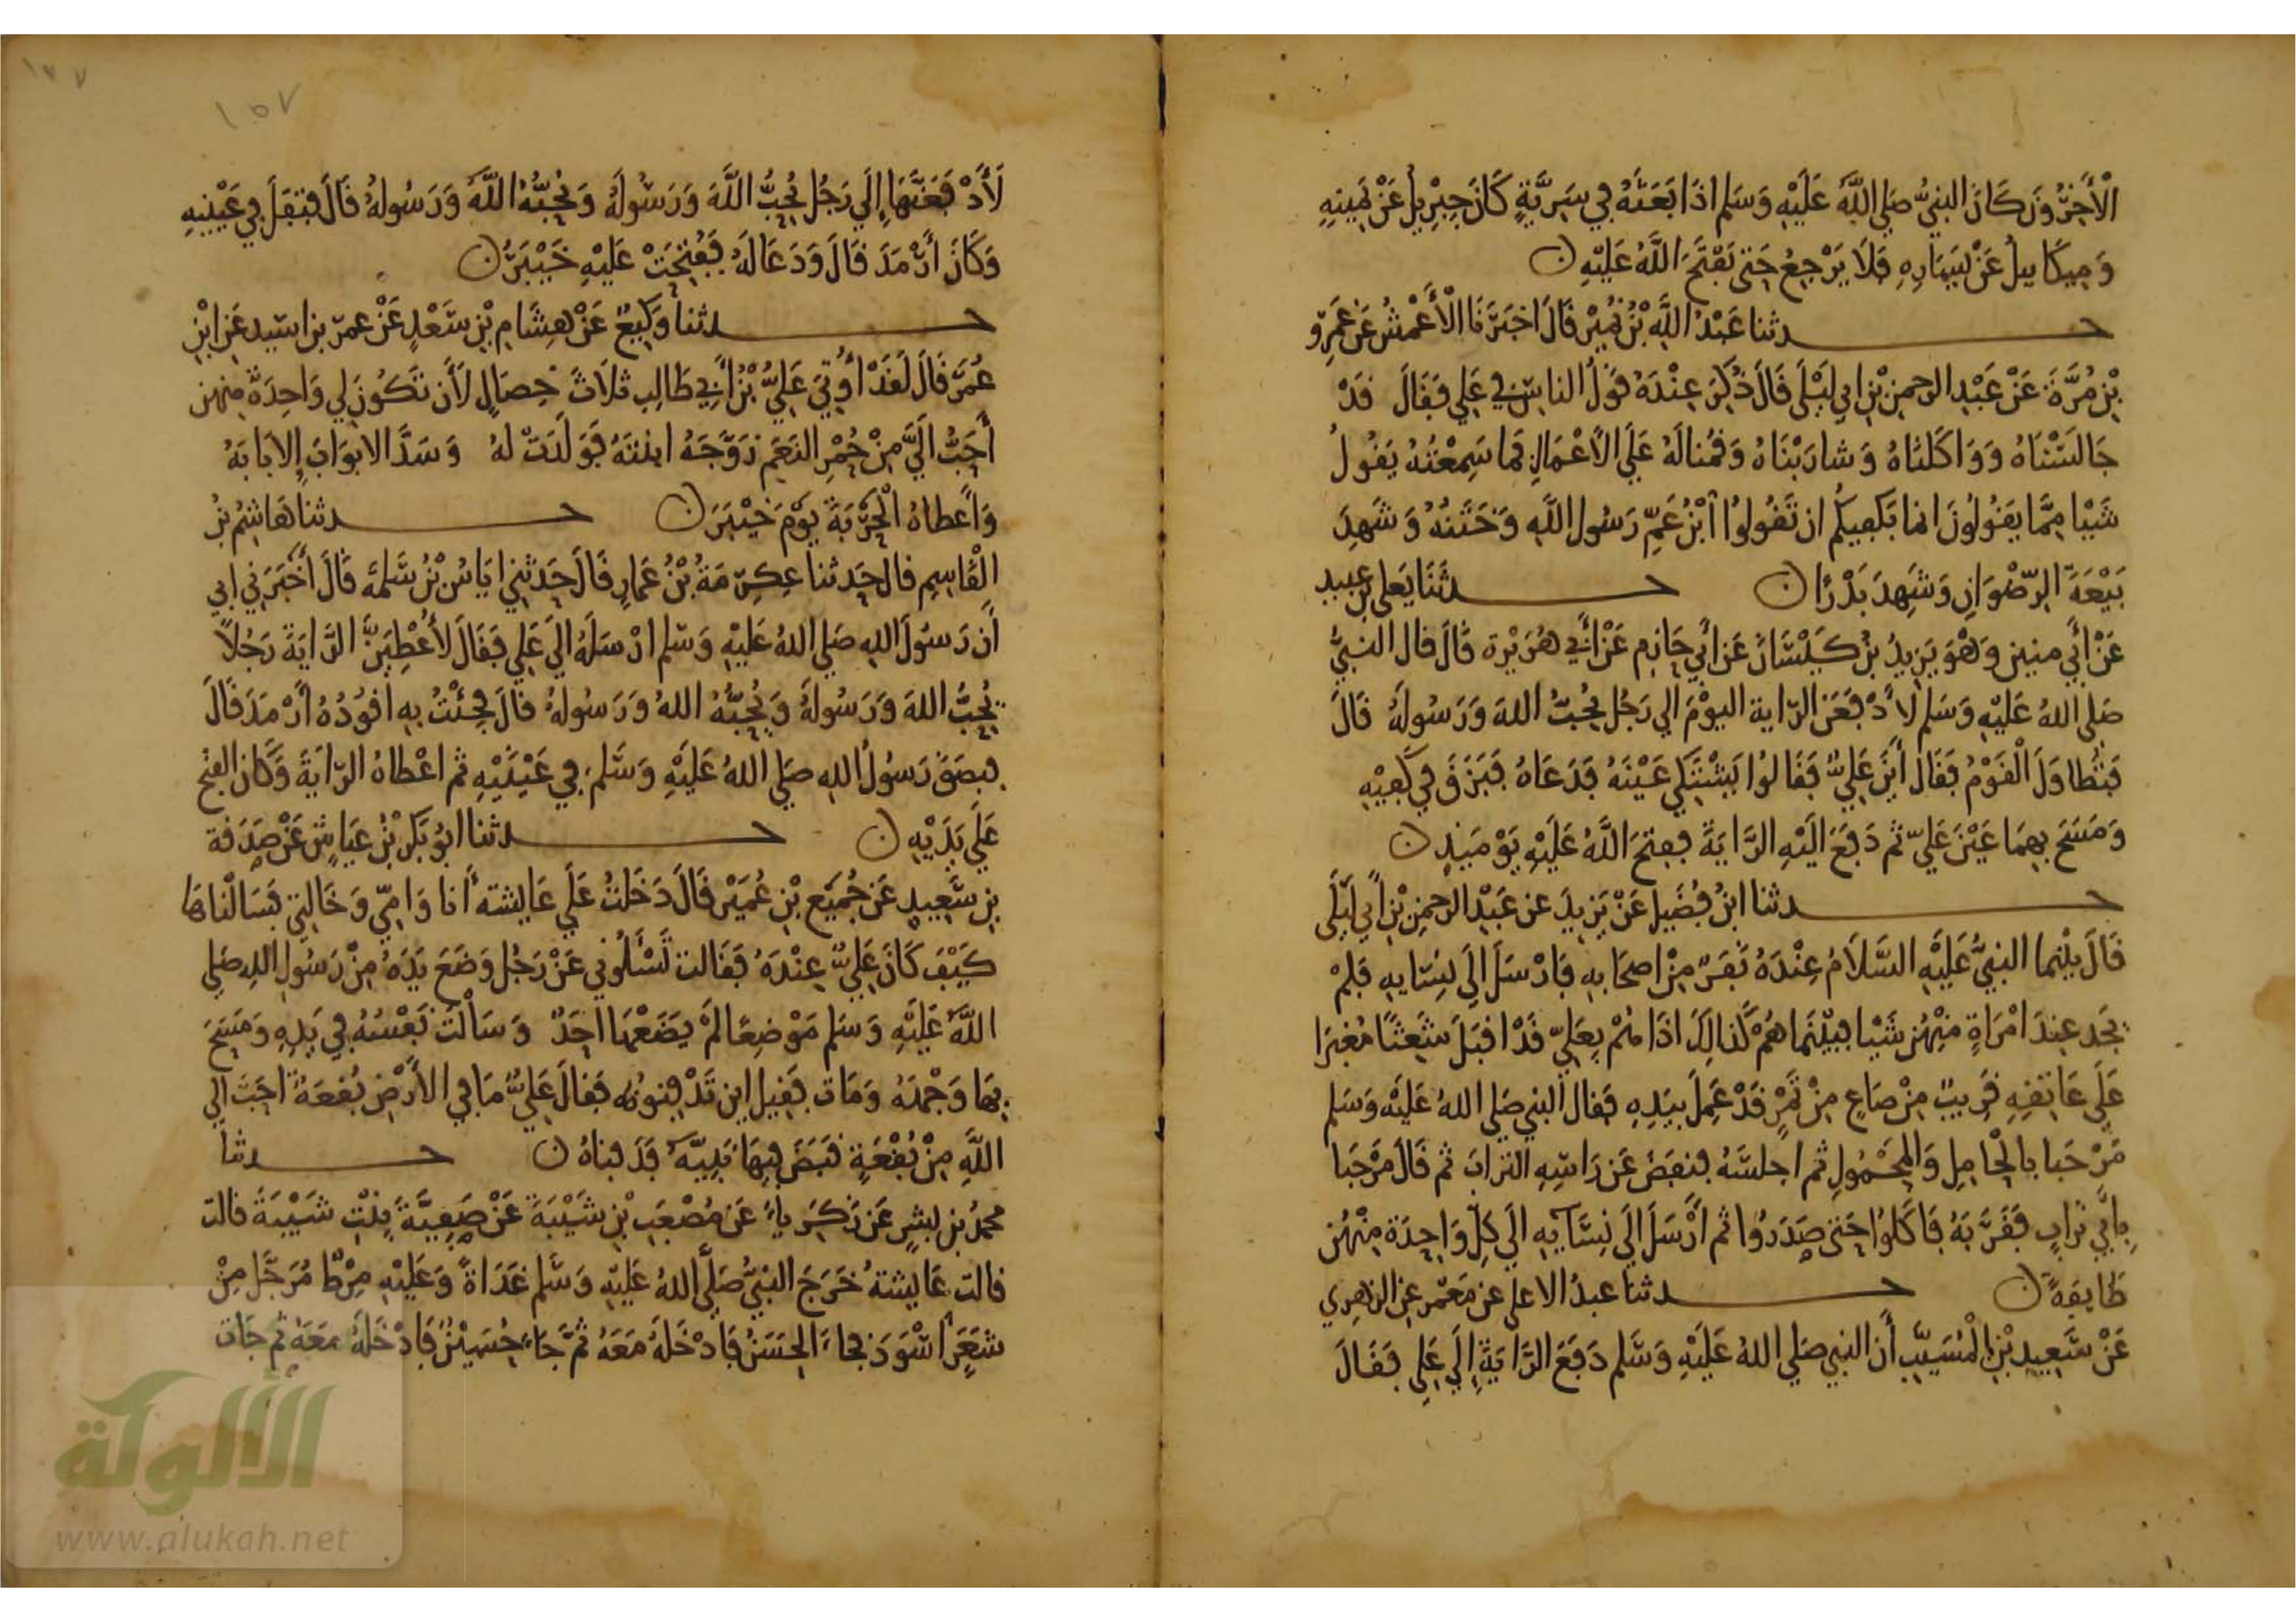 الْأَخِرُونَ كَانَ النبيُّ صَلي اللَّهُ عَلَيْهِ وَسَلم اذَا بَعَثَهُ فِي سَرِيَّةٍ كَانَ جِبْرِيلُ عَنْ يَمِينِهِ
وَمِيكَايِيلُ عَنْ يَسَارِهِ فَلَا يَرْجِعُ حَتى يَفْتَحَ اللَّهُ عَلَيْهِ ن
حدثنا عَبْدُ اللَّهِ بْنُ نُمَيْرٍ قَالَ اخبَرَنَا الْأَعْمَشُ عَنْ عَمْرِو
بْنِ مُرَّةَ عَنْ عَبْدِ الرحمنِ بْنِ ابي لَيْلَى قَالَ ذُكِرَ عِنْدَهُ قَوْلُ الناسِ فِي عَلِي فَقَالَ قَدْ
جَالَسْنَاهُ وَوَاكَلنَاهُ وَشَارَبْنَاهُ وَقُمْنا لَهُ عَلَى الأَعْمَالِ فَمَا سَمِعْتُهُ يَقُولُ
شَيْا مِمَّا يَقُولُونَ انما يَكفِيكُم ان تَقُولُوا ابْنُ عَمِّ رَسُولِ اللَّهِ وَخَتَنُهُ وَشَهِدَ
بَيْعَةَ الرِّضْوَانِ وَشَهِدَ بَدْرًا ن حدثَنَا يَعلى بن عبيد
عَنْ أَبي منين وَهْوَ يَزِيدُ بْنُ كَيْسَانَ عَن ابي حَازِم عَنْ أَبِي هُرَيْرة قَالَ قال النبيُّ
صَلى اللهُ عَلَيْهِ وَسَلم لأَدْفَعَن الرّاية اليوْمَ الي رَجُلٍ يُحِبُّ اللهَ وَرَسُولَهُ قَالَ
فَتَطاوَلَ الْقَوْمُ فَقَالَ أَيْنَ عَلِيٌّ فَقَالُوا يَشْتَكي عَيْنَهُ فَدَعَاهُ فَبَزَقَ فِي كَفيْهِ
وَمَسَحَ بِهِمَا عَيْنَ عَلِيّ ثم دَفَعَ الَيْهِ الرَّايَةَ ففتحَ اللَّهُ عَلَيْهِ يَوْمَيذٍ ن
حدثنا ابنُ فُضَيل عَنْ يَزِيدَ عن عَبْدِ الرحمنِ بْنِ أَبي لَيْلَى
قَالَ بيْنما النبيُّ عَلَيْهِ السَّلَامُ عِنْدَهُ نَفَرٌ مِنْ اصحَابِهِ فَارْسَلَ إِلَى نِسَايِهِ فَلمْ
يَجد عِندَ امْرَاةٍ مِنْهُن شَيْا فبيْنَما هُمْ كَذالِكَ اذَا هُمْ بِعَلِيّ قَدْ اقبَلَ شَعِثًا مُغْبَرَا
عَلَي عَاتِقِهِ قَرِيبٌ مِنْ صَاعٍ مِنْ تَمْرٍ قَدْ عَمِلَ بيَدِهِ فَقال النبي صَلى اللهُ عَلَيْه وَسَلم
مَرْحَبا بالْحَامِلِ وَالمَحْمُولِ ثم اجلسَهُ فنفَضَ عَن رَاسِهِ الترابَ ثم قَالَ مَرْحَبا
بِأَبي تُرَابٍ فَقَرَّبَهُ فَاكَلُوا حَتى صَدَرُوا ثم أَرْسَلَ الَى نِسَآيِهِ الَي كُلِّ وَاحِدَةٍ مِنْهُن
طَايِفَةً ن حدثنا عبدُ الاعلى عن مَعْمَر عَنِ الزهرِي
عَنْ سَعِيدِ بْنِ الْمُسَيَّبِ أَن النبي صَلي اللهُ عَلَيْهِ وَسَّلم دَفَعَ الرَّايَةَ إِلَي عَلِي فَقَالَ
١٥٧
لَأَدْفَعَنَّهَا إِلَي رَجُلٍ يُحِبُّ اللَّهَ وَرَسُولَهُ وَيُحِبُّهُ اللَّهُ وَرَسُولهُ قَالَ فتفَلَ فِي عَيْنِيهِ
وَكَانَ أَرْمَدَ قَالَ وَدَعَا لَهُ فَفُتِحَتْ عَلَيْهِ خَيْبَرُ ن
حدثنا وَكِيعٌ عَنْ هِشَامِ بْنِ سَعْدٍ عَنْ عمرَ بن اسيد عَنِ ابْنِ
عُمَرَ قَالَ لَقَدْ أُوتِيَ عَلِيُّ بْنُ أَبِي طَالِب ثلَاثَ خِصَالٍ لَأَن تَكُونَ لِي وَاحِدَةٌ مِنهن
أَحَبُّ الَيَّ مِنْ حُمْرِ النَعَم زَوَّجَهُ ابنتَهُ فَوَلَدَتْ لهُ وَسَدَّ الابوَابَ إِلا بَابَهُ
وَأَعطاهُ الْحَرْبَةَ يوْمَ خَيْبَرَ ن حدثنا هَاشِمُ بْنُ
الْقَاسِمِ قال حَدثنا عِكرِمَةُ بْنُ عَمارٍ قَالَ حَدثني ايَاسُ بْنُ سَلمة قَالَ أَخْبَرَنِي ابي
أَن رَسُولَ اللهِ صَلي اللهُ عَلَيْهِ وَسَّلم ارْسَلَهُ الَي عَلي فَقَالَ لأُعْطِيَنَّ الرَّايَةَ رَجُلاً
يُحِبُّ اللهَ وَرَسُولَهُ وَيُحِبُّهُ اللهُ وَرَسُولهُ قَالَ فجِئْتُ بِهِ اقُودُهُ أَرْمَدَ قَالَ
فبصَقَ رَسُولُ اللهِ صَلي اللهُ عَلَيْهِ وَسَّلمَ فِي عَيْنَيْهِ ثم اعْطاهُ الرّايَةَ وَكَان الفتح
عَلَي يَدَيْهِ ن حدثنا ابُو بَكرْ بْنُ عَيَاش عَنْ صَدَقة
بن سَّعِيدٍ عَن جُمَيْعِ بْنِ عُمَيْر قَالَ دَخَلتُ عَلَي عَايشة أَنا وَامِّي وَخَالتِي فَسَالْناهَا
كَيْفَ كَانَ عَلِيٌّ عِنْدَهُ فَقَالت تَسْأَلُوني عَنْ رَجُلٍ وَضَعَ يَدَهُ مِنْ رَسُولِ اللهِ صَلي
اللَّهُ عَلَيْهِ وَسَلم مَوْضِعًا لَمْ يَضَعْهَا احَدٌ وَسَالَتْ نَفْسُهُ فِي يَدِهِ وَمَسَحَ
بِهَا وَجْهَهُ وَمَاتَ فَقِيلَ اين تَدْفِنُونُه فَقَالَ عَلِيٌّ مَا فِي الأَرْضِ بُقعَةٌ احَبَّ الي
اللَّهِ مِنْ بُقْعَةٍ قبَضَ فِيهَا نَبِيَّهُ فَدَفناهُ ن حدثنا
محمدُ بن بشرٍ عَن زَكَرِياءَ عَن مُصْعَبِ بْنِ شَيْبَةَ عَنْ صَفِيَّةَ بِنْتِ شَيْبَةَ قالت
قالت عَايشةُ خَرَجَ النبيُّ صَلَّي اللهُ عَلَيْهِ وَسَّلم غَدَاةً وَعَلَيْهِ مِرْطٌ مُرَجَّل مِنْ
شعَرٍ اسْوَدَ فجاءَ الحَسَنُ فَادْخَلَهُ مَعَهُ ثُمَّ جَاءَ حُسَيْنٌ فَادْخَلَهُ مَعَهُ ثم جَات
الألوكة
www.alukah.net